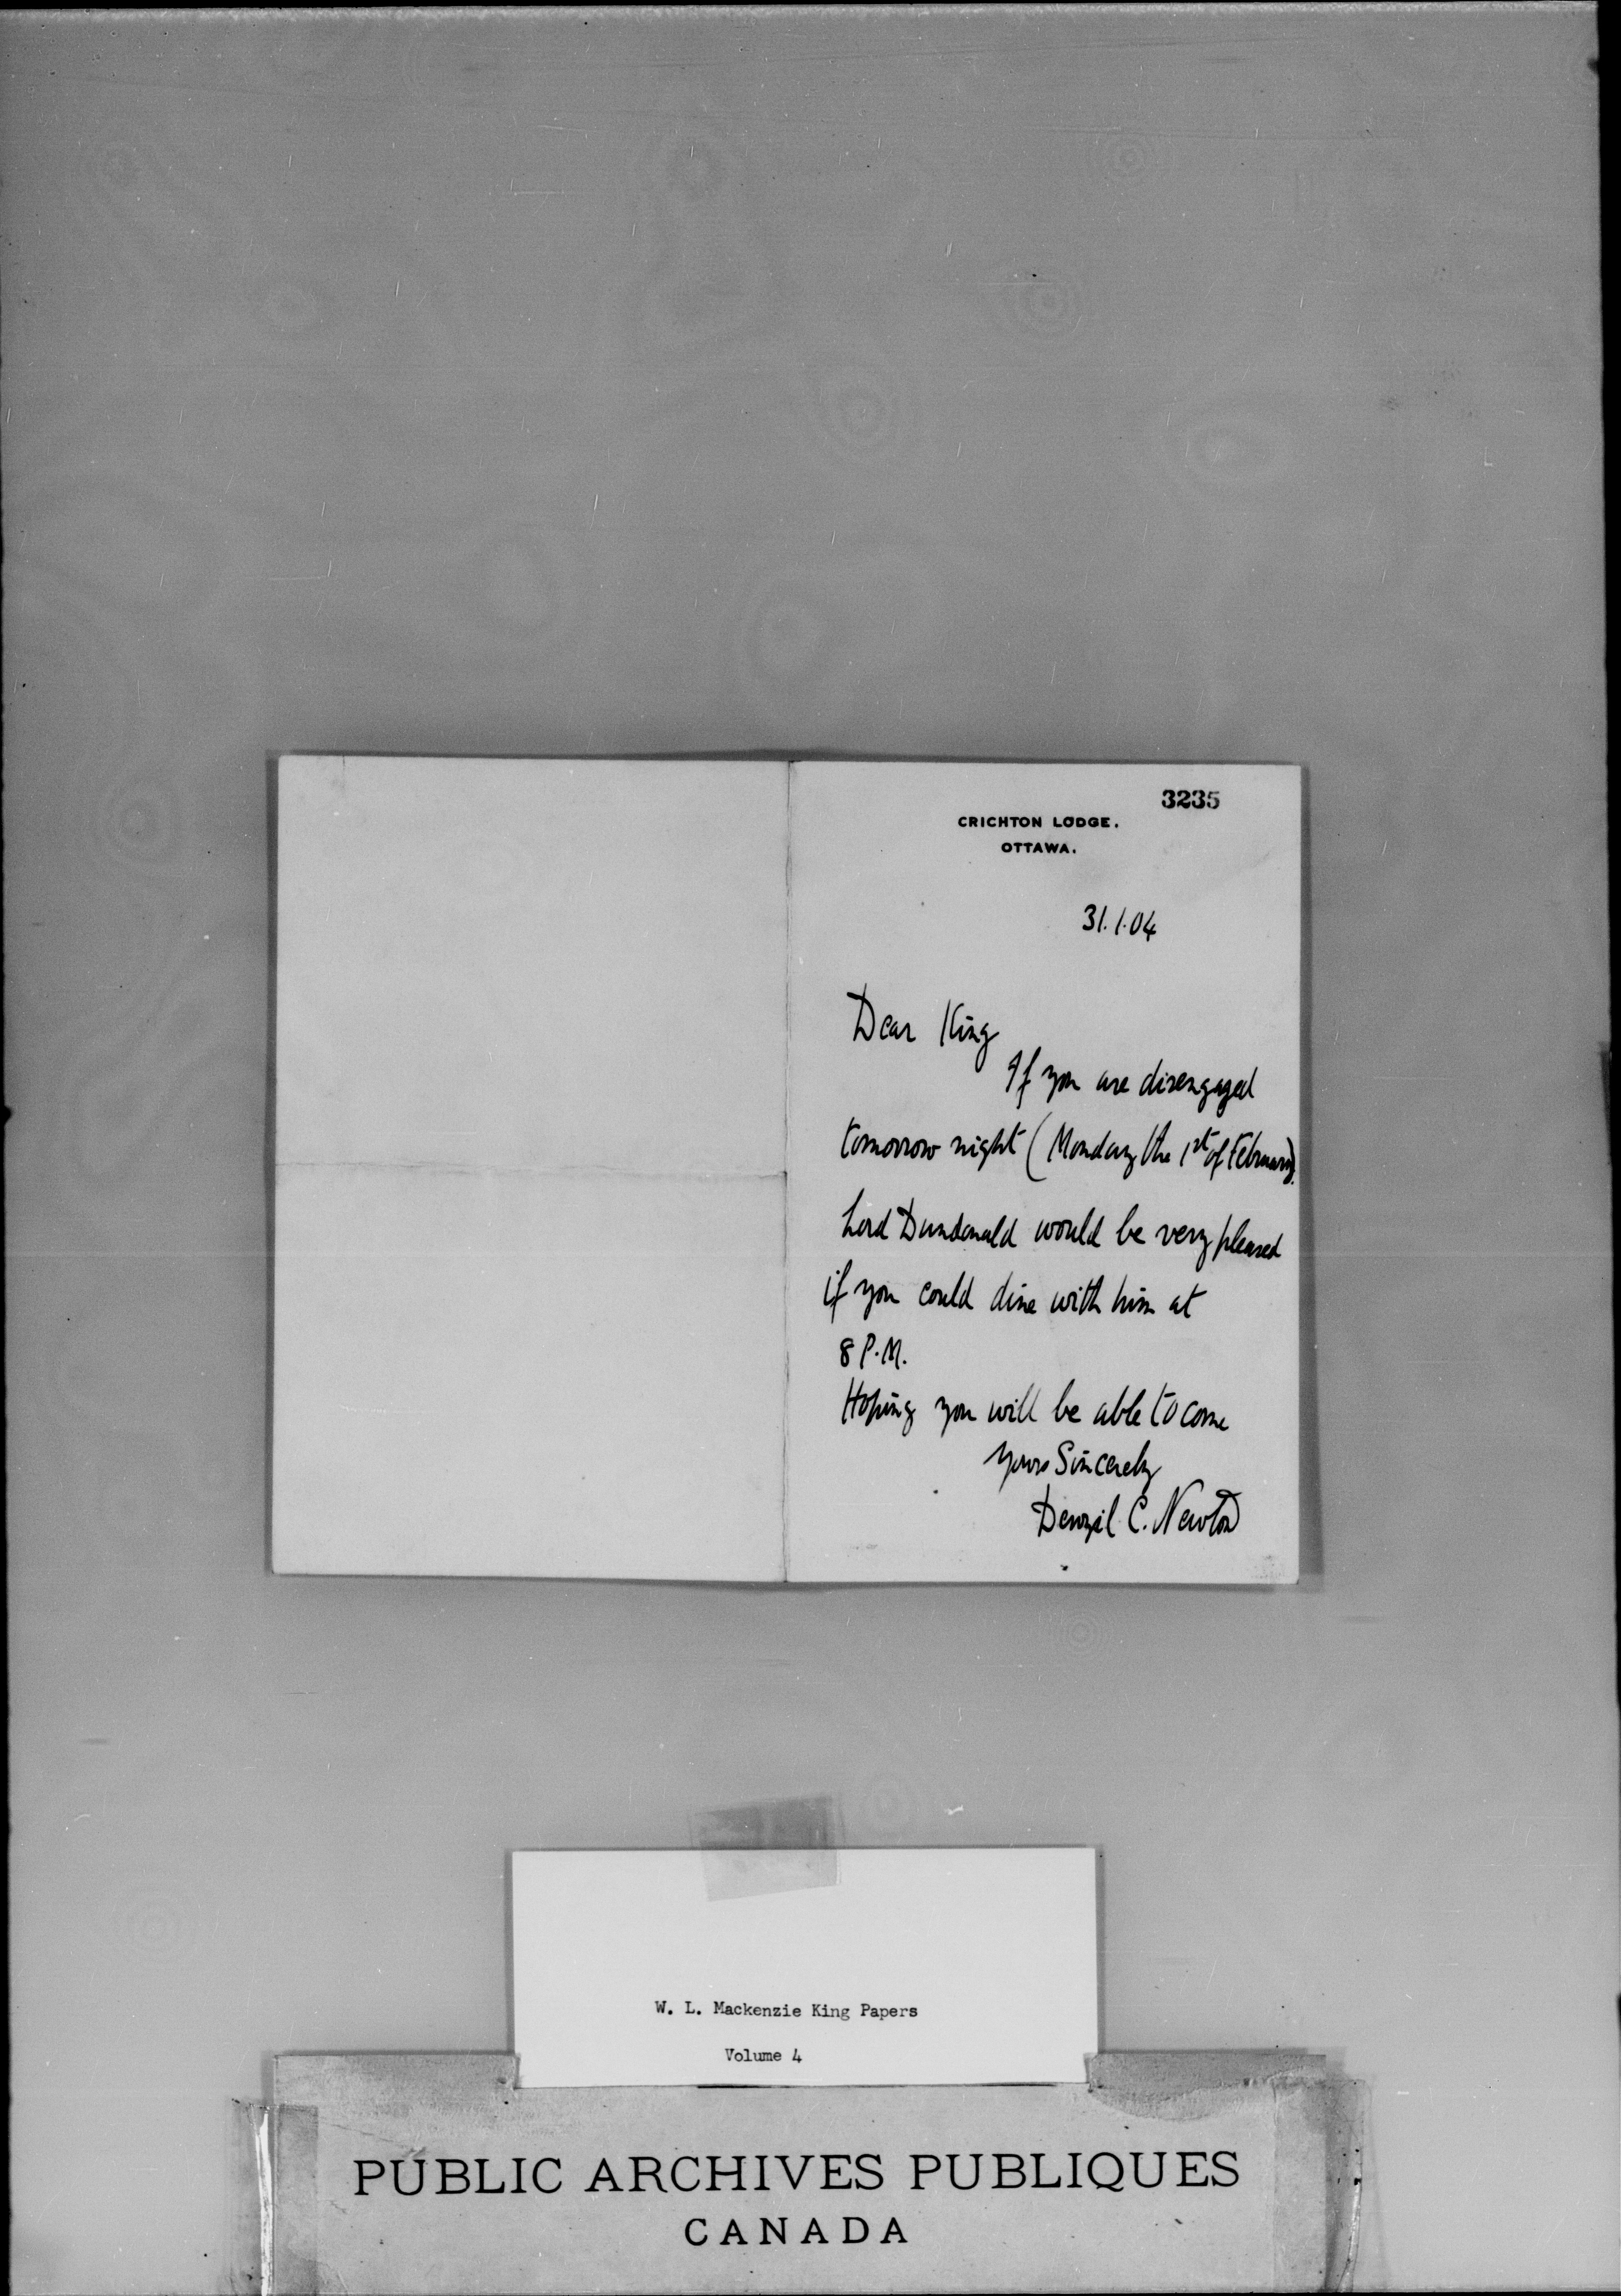 3235
CRICHTON LODGE.
OTTAWA.
31.1.04
Dear King
If you are disengaged
tomorrow night (Monday the 1st of February).
Lord Dundonald would be very pleased
if you could dine with him at
8 P.M.
Hoping you will be able to come
Yours Sincerely
Denzil C. Newton
W. L. Mackenzie King Papers
Volume 4
PUBLIC ARCHIVES PUBLIQUES
CANADA